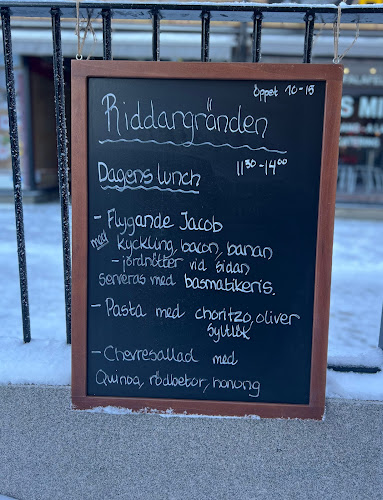 Öppet 10-15
Riddargränden
Dagens lunch 11³⁰-14⁰⁰
- Flygande Jacob
med kyckling, bacon, banan
- jordnötter vid sidan
serveras med basmatikeris.
- Pasta med choritzo, oliver
Syltlök
- Chevresallad med
Quinoa, rödbetor, honung